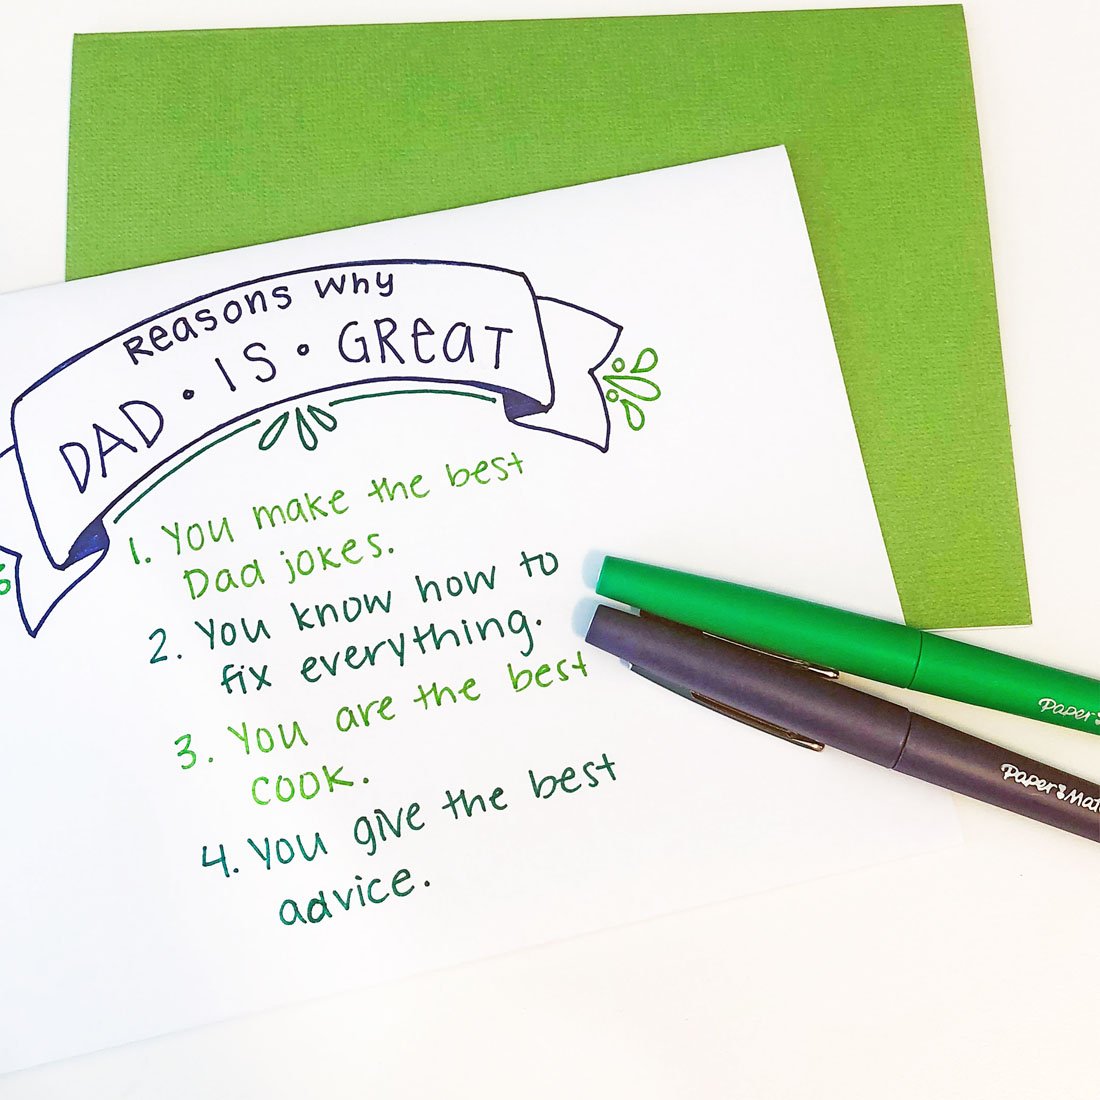 Reasons Why
DAD • IS • GReaT
1. You make the best
Dad jokes.
2. You know how to
fix everything.
3. You are the best
cook.
4. You give the best
advice.
Paper
Paper Mat